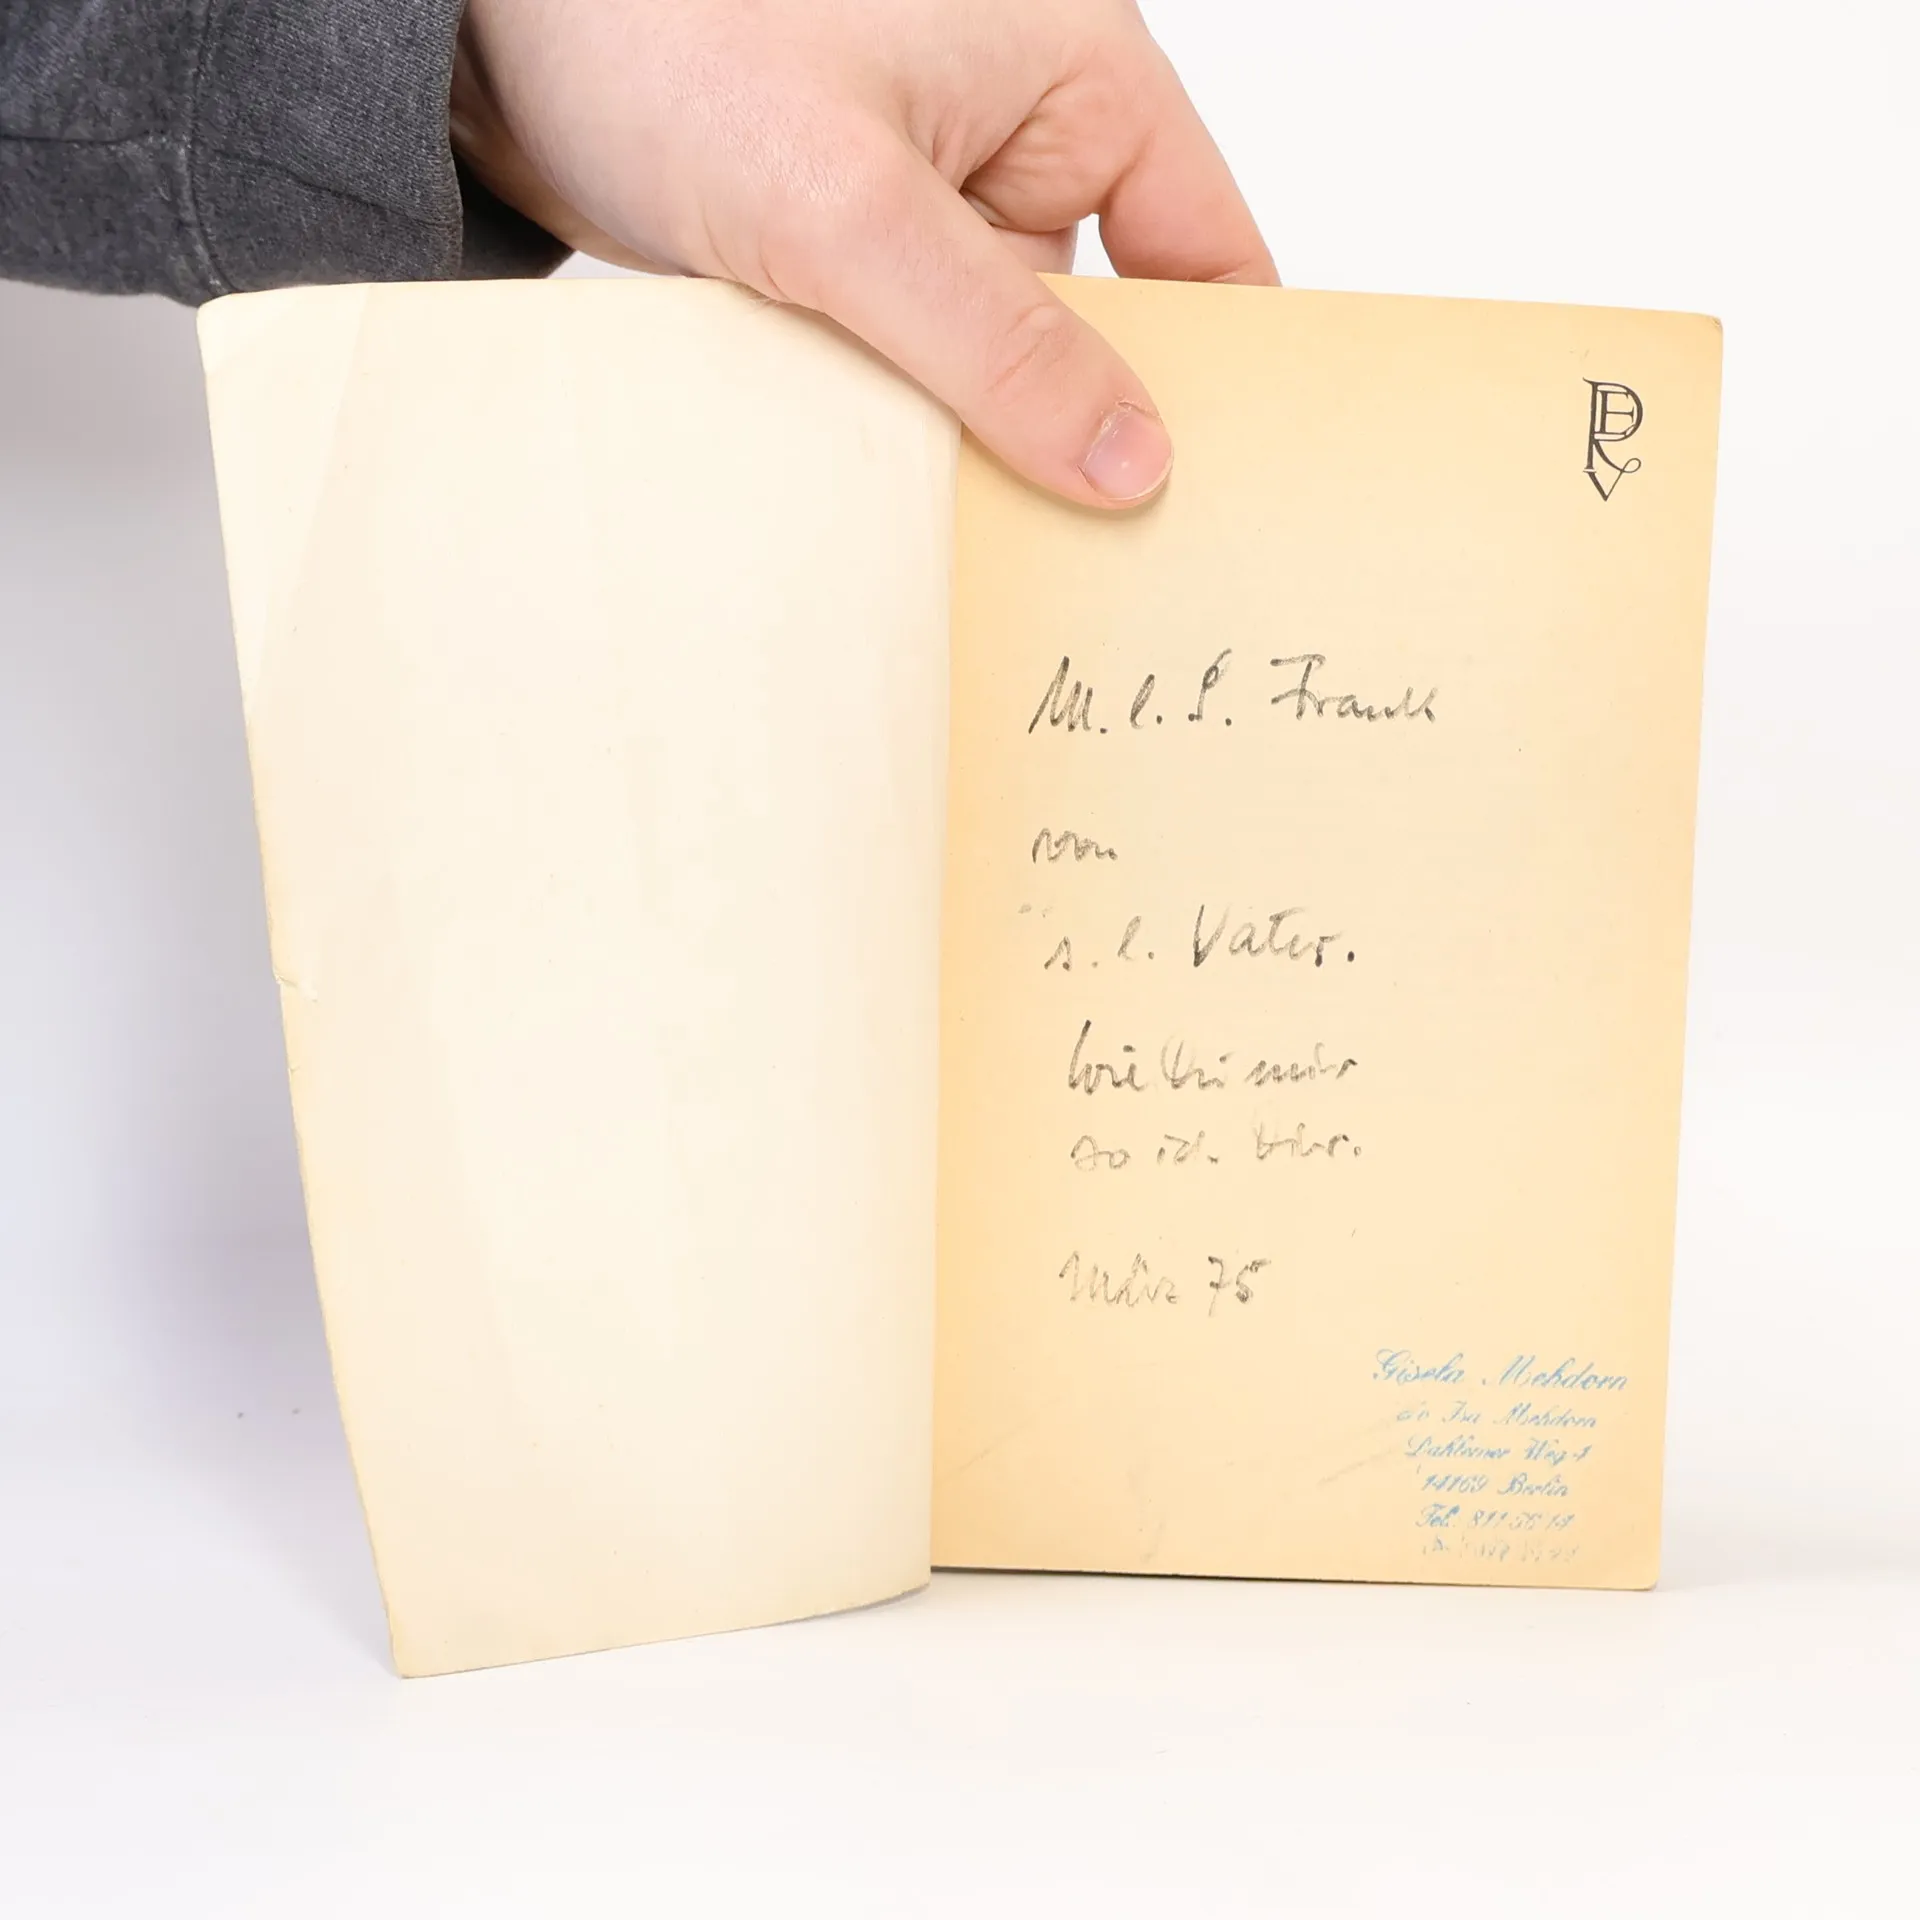 PERV
M. l. S. Frank
von
s. l. Vater.
Wie Du mir
so ich Dir.
März 75
Gisela Mehdorn
c/o Isa Mehdorn
Dahlemer Weg
14169 Berlin
Tel. 811 56 14